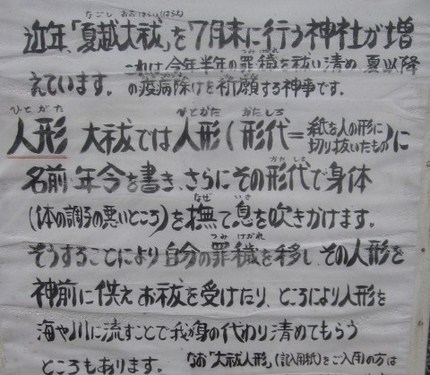 近年、「夏越大祓」を7月末に行う神社が増
なごしおおはらい(はらえ)
えています。これは今年半年の罪穢を祓い清め、夏以降
つみけがれ
の疫病除けを祈願する神事です。
ひとがた
人形 大祓では人形(形代=紙を人の形に切り抜いたもの)に
ひとがた かたしろ
名前、年令を書き、さらにその形代で身体
かたしろ
(体の調子の悪いところ)を撫で息を吹きかけます。
なで いき
そうすることにより自分の罪穢を移し、その人形を
つみ けがれ
神前に供えお祓を受けたり、ところにより人形を
海や川に流すことで我身の代わり清めてもらう
ところもあります。「なお「大祓人形」(記入用紙)をご入用の方は